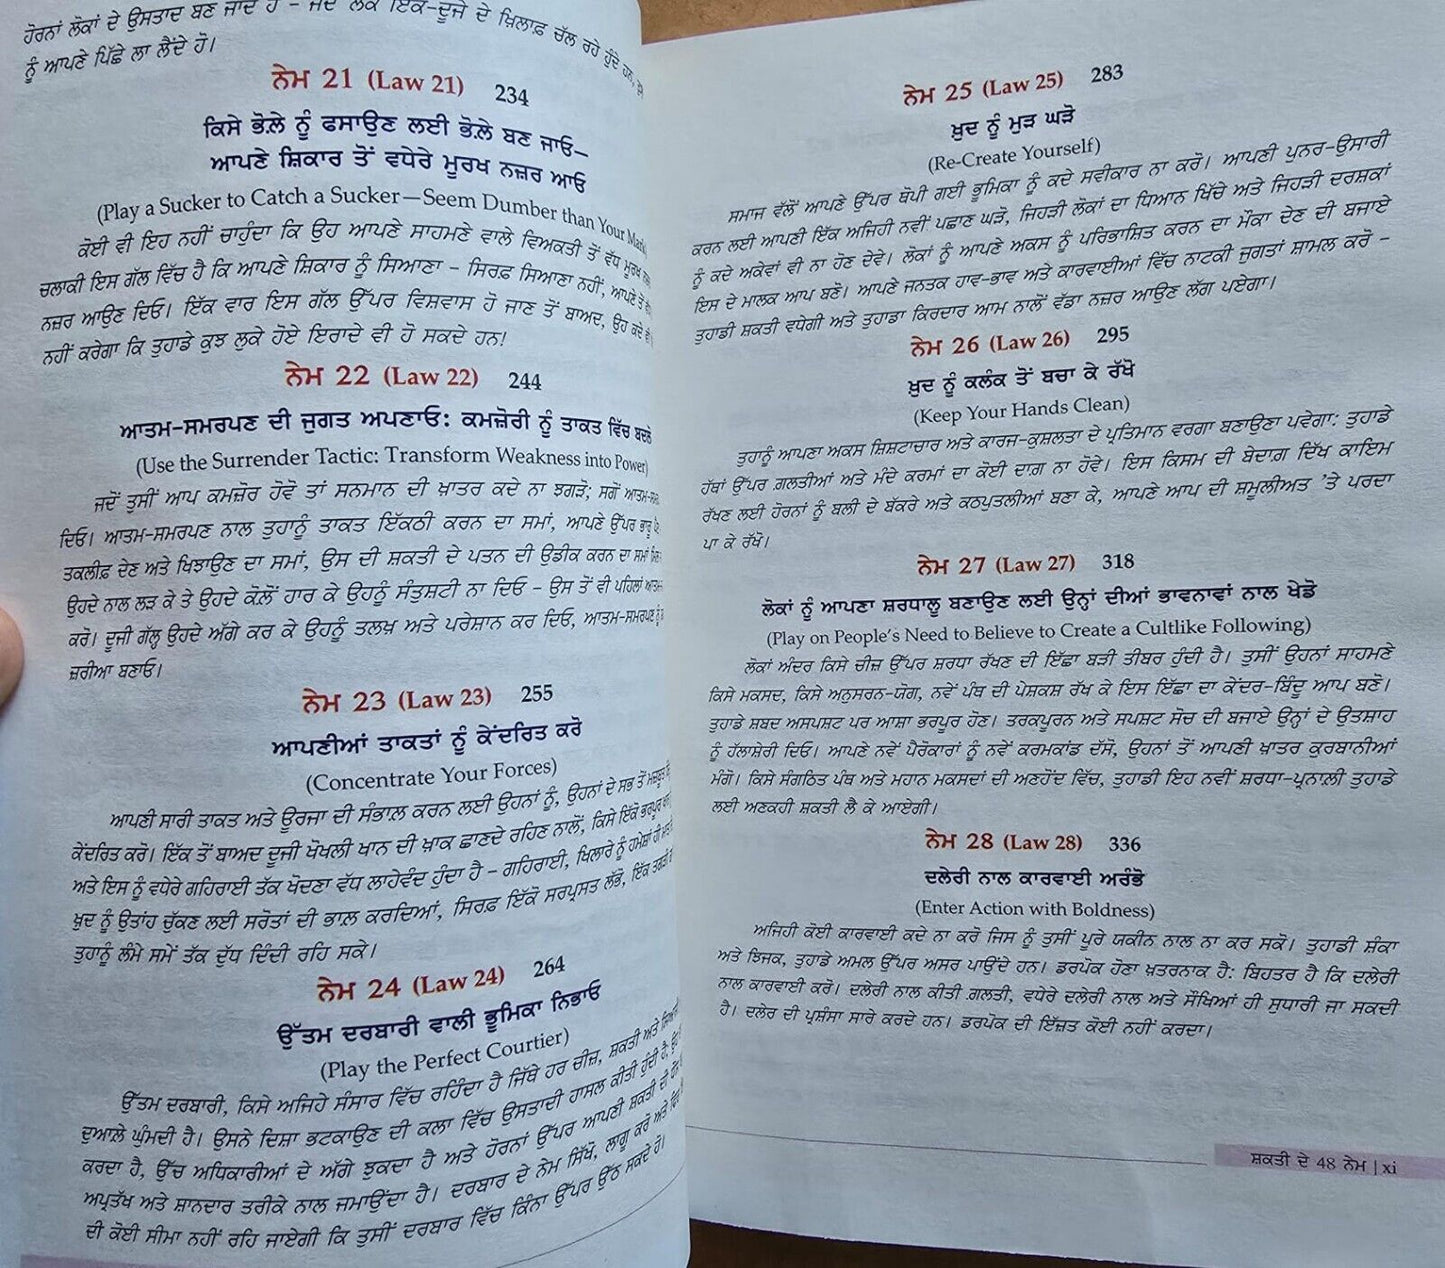 ਹੋਰਨਾਂ ਲੋਕਾਂ ਦੇ ਉਸਤਾਦ ਬਣ ਜਾਂਦੇ ਹੋ – ਜਦੋਂ ਲੋਕ ਇੱਕ-ਦੂਜੇ ਦੇ ਖ਼ਿਲਾਫ਼ ਚੱਲ ਰਹੇ ਹੁੰਦੇ ਹਨ,
ਨੂੰ ਆਪਣੇ ਪਿੱਛੇ ਲਾ ਲੈਂਦੇ ਹੋ।
ਨੇਮ 21 (Law 21) 234
ਕਿਸੇ ਭੋਲੇ ਨੂੰ ਫਸਾਉਣ ਲਈ ਭੋਲੇ ਬਣ ਜਾਓ–
ਆਪਣੇ ਸ਼ਿਕਾਰ ਤੋਂ ਵਧੇਰੇ ਮੂਰਖ ਨਜ਼ਰ ਆਓ
(Play a Sucker to Catch a Sucker—Seem Dumber than Your Mark)
ਕੋਈ ਵੀ ਇਹ ਨਹੀਂ ਚਾਹੁੰਦਾ ਕਿ ਉਹ ਆਪਣੇ ਸਾਹਮਣੇ ਵਾਲੇ ਵਿਅਕਤੀ ਤੋਂ ਵੱਧ ਮੂਰਖ
ਚਲਾਕੀ ਇਸ ਗੱਲ ਵਿੱਚ ਹੈ ਕਿ ਆਪਣੇ ਸ਼ਿਕਾਰ ਨੂੰ ਸਿਆਣਾ – ਸਿਰਫ਼ ਸਿਆਣਾ ਨਹੀਂ, ਆਪਣੇ ਤੋਂ
ਨਜ਼ਰ ਆਉਣ ਦਿਓ। ਇੱਕ ਵਾਰ ਇਸ ਗੱਲ ਉੱਪਰ ਵਿਸ਼ਵਾਸ ਹੋ ਜਾਣ ਤੋਂ ਬਾਅਦ, ਉਹ ਕਦੇ
ਨਹੀਂ ਕਰੇਗਾ ਕਿ ਤੁਹਾਡੇ ਕੁਝ ਲੁਕੇ ਹੋਏ ਇਰਾਦੇ ਵੀ ਹੋ ਸਕਦੇ ਹਨ!
ਨੇਮ 22 (Law 22) 244
ਆਤਮ-ਸਮਰਪਣ ਦੀ ਜੁਗਤ ਅਪਣਾਓ: ਕਮਜ਼ੋਰੀ ਨੂੰ ਤਾਕਤ ਵਿੱਚ ਬਦਲੋ
(Use the Surrender Tactic: Transform Weakness into Power)
ਜਦੋਂ ਤੁਸੀਂ ਆਪ ਕਮਜ਼ੋਰ ਹੋਵੋ ਤਾਂ ਸਨਮਾਨ ਦੀ ਖ਼ਾਤਰ ਕਦੇ ਨਾ ਝਗੜੋ; ਸਗੋਂ
ਦਿਓ। ਆਤਮ-ਸਮਰਪਣ ਨਾਲ ਤੁਹਾਨੂੰ ਤਾਕਤ ਇਕੱਠੀ ਕਰਨ ਦਾ ਸਮਾਂ, ਆਪਣੇ ਉੱਪਰ ਭਾਰੂ
ਤਕਲੀਫ਼ ਦੇਣ ਅਤੇ ਖਿਝਾਉਣ ਦਾ ਸਮਾਂ, ਉਸ ਦੀ ਸ਼ਕਤੀ ਦੇ ਪਤਨ ਦੀ ਉਡੀਕ ਕਰਨ ਦਾ ਸਮਾਂ
ਉਹਦੇ ਨਾਲ ਲੜ ਕੇ ਤੇ ਉਹਦੇ ਕੋਲੋਂ ਹਾਰ ਕੇ ਉਹਨੂੰ ਸੰਤੁਸ਼ਟੀ ਨਾ ਦਿਓ – ਉਸ ਤੋਂ ਵੀ ਪਹਿਲਾਂ
ਕਰੋ। ਦੂਜੀ ਗੱਲ੍ਹ ਉਹਦੇ ਅੱਗੇ ਕਰ ਕੇ ਉਹਨੂੰ ਤਲਖ਼ ਅਤੇ ਪਰੇਸ਼ਾਨ ਕਰ ਦਿਓ, ਆਤਮ-ਸਮਰਪਣ ਨੂੰ
ਜ਼ਰੀਆ ਬਣਾਓ।
ਨੇਮ 23 (Law 23) 255
ਆਪਣੀਆਂ ਤਾਕਤਾਂ ਨੂੰ ਕੇਂਦਰਿਤ ਕਰੋ
(Concentrate Your Forces)
ਆਪਣੀ ਸਾਰੀ ਤਾਕਤ ਅਤੇ ਊਰਜਾ ਦੀ ਸੰਭਾਲ ਕਰਨ ਲਈ ਉਹਨਾਂ ਨੂੰ, ਉਹਨਾਂ ਦੇ ਸਭ ਤੋਂ ਮਜ਼ਬੂਤ
ਕੇਂਦਰਿਤ ਕਰੋ। ਇੱਕ ਤੋਂ ਬਾਅਦ ਦੂਜੀ ਖੋਖਲੀ ਖਾਨ ਦੀ ਖ਼ਾਕ ਛਾਣਦੇ ਰਹਿਣ ਨਾਲੋਂ, ਕਿਸੇ ਇੱਕੋ ਭਰਪੂਰ
ਅਤੇ ਇਸ ਨੂੰ ਵਧੇਰੇ ਗਹਿਰਾਈ ਤੱਕ ਖੋਦਣਾ ਵੱਧ ਲਾਹੇਵੰਦ ਹੁੰਦਾ ਹੈ – ਗਹਿਰਾਈ, ਖਿਲਾਰੇ ਨੂੰ ਹਮੇਸ਼ਾਂ ਹੀ
ਖ਼ੁਦ ਨੂੰ ਉਤਾਂਹ ਚੁੱਕਣ ਲਈ ਸਰੋਤਾਂ ਦੀ ਭਾਲ ਕਰਦਿਆਂ, ਸਿਰਫ਼ ਇੱਕੋ ਸਰਪ੍ਰਸਤ ਲੱਭੋ, ਇੱਕ ਤਗੜੀ
ਤੁਹਾਨੂੰ ਲੰਮੇ ਸਮੇਂ ਤੱਕ ਦੁੱਧ ਦਿੰਦੀ ਰਹਿ ਸਕੇ।
ਨੇਮ 24 (Law 24) 264
ਉੱਤਮ ਦਰਬਾਰੀ ਵਾਲੀ ਭੂਮਿਕਾ ਨਿਭਾਓ
(Play the Perfect Courtier)
ਉੱਤਮ ਦਰਬਾਰੀ, ਕਿਸੇ ਅਜਿਹੇ ਸੰਸਾਰ ਵਿੱਚ ਰਹਿੰਦਾ ਹੈ ਜਿੱਥੇ ਹਰ ਚੀਜ਼, ਸ਼ਕਤੀ ਅਤੇ
ਦੁਆਲੇ ਘੁੰਮਦੀ ਹੈ। ਉਸਨੇ ਦਿਸ਼ਾ ਭਟਕਾਉਣ ਦੀ ਕਲਾ ਵਿੱਚ ਉਸਤਾਦੀ ਹਾਸਲ ਕੀਤੀ ਹੁੰਦੀ ਹੈ;
ਕਰਦਾ ਹੈ, ਉੱਚ ਅਧਿਕਾਰੀਆਂ ਦੇ ਅੱਗੇ ਝੁਕਦਾ ਹੈ ਅਤੇ ਹੋਰਨਾਂ ਉੱਪਰ ਆਪਣੀ ਸ਼ਕਤੀ ਦੀ
ਅਪ੍ਰਤੱਖ ਅਤੇ ਸ਼ਾਨਦਾਰ ਤਰੀਕੇ ਨਾਲ ਜਮਾਉਂਦਾ ਹੈ। ਦਰਬਾਰ ਦੇ ਨੇਮ ਸਿੱਖੋ, ਲਾਗੂ ਕਰੋ ਅਤੇ
ਦੀ ਕੋਈ ਸੀਮਾ ਨਹੀਂ ਰਹਿ ਜਾਏਗੀ ਕਿ ਤੁਸੀਂ ਦਰਬਾਰ ਵਿੱਚ ਕਿੰਨਾ ਉੱਪਰ ਉੱਠ ਸਕਦੇ ਹੋ।
ਨੇਮ 25 (Law 25) 283
ਖ਼ੁਦ ਨੂੰ ਮੁੜ ਘੜੋ
(Re-Create Yourself)
ਸਮਾਜ ਵੱਲੋਂ ਆਪਣੇ ਉੱਪਰ ਥੋਪੀ ਗਈ ਭੂਮਿਕਾ ਨੂੰ ਕਦੇ ਸਵੀਕਾਰ ਨਾ ਕਰੋ। ਆਪਣੀ ਪੁਨਰ-ਉਸਾਰੀ
ਕਰਨ ਲਈ ਆਪਣੀ ਇੱਕ ਅਜਿਹੀ ਨਵੀਂ ਪਛਾਣ ਘੜੋ, ਜਿਹੜੀ ਲੋਕਾਂ ਦਾ ਧਿਆਨ ਖਿੱਚੇ ਅਤੇ ਜਿਹੜੀ ਦਰਸ਼ਕਾਂ
ਨੂੰ ਕਦੇ ਅਕੇਵਾਂ ਵੀ ਨਾ ਹੋਣ ਦੇਵੇ। ਲੋਕਾਂ ਨੂੰ ਆਪਣੇ ਅਕਸ ਨੂੰ ਪਰਿਭਾਸ਼ਿਤ ਕਰਨ ਦਾ ਮੌਕਾ ਦੇਣ ਦੀ ਬਜਾਏ
ਇਸ ਦੇ ਮਾਲਕ ਆਪ ਬਣੋ। ਆਪਣੇ ਜਨਤਕ ਹਾਵ-ਭਾਵ ਅਤੇ ਕਾਰਵਾਈਆਂ ਵਿੱਚ ਨਾਟਕੀ ਜੁਗਤਾਂ ਸ਼ਾਮਲ ਕਰੋ –
ਤੁਹਾਡੀ ਸ਼ਕਤੀ ਵਧੇਗੀ ਅਤੇ ਤੁਹਾਡਾ ਕਿਰਦਾਰ ਆਮ ਨਾਲੋਂ ਵੱਡਾ ਨਜ਼ਰ ਆਉਣ ਲੱਗ ਪਏਗਾ।
ਨੇਮ 26 (Law 26) 295
ਖ਼ੁਦ ਨੂੰ ਕਲੰਕ ਤੋਂ ਬਚਾ ਕੇ ਰੱਖੋ
(Keep Your Hands Clean)
ਤੁਹਾਨੂੰ ਆਪਣਾ ਅਕਸ ਸ਼ਿਸ਼ਟਾਚਾਰ ਅਤੇ ਕਾਰਜ-ਕੁਸ਼ਲਤਾ ਦੇ ਪ੍ਰਤਿਮਾਨ ਵਰਗਾ ਬਣਾਉਣਾ ਪਵੇਗਾ: ਤੁਹਾਡੇ
ਹੱਥਾਂ ਉੱਪਰ ਗ਼ਲਤੀਆਂ ਅਤੇ ਮੰਦੇ ਕਰਮਾਂ ਦਾ ਕੋਈ ਦਾਗ਼ ਨਾ ਹੋਵੇ। ਇਸ ਕਿਸਮ ਦੀ ਬੇਦਾਗ਼ ਦਿੱਖ ਕਾਇਮ
ਰੱਖਣ ਲਈ ਹੋਰਨਾਂ ਨੂੰ ਬਲੀ ਦੇ ਬੱਕਰੇ ਅਤੇ ਕਠਪੁਤਲੀਆਂ ਬਣਾ ਕੇ, ਆਪਣੇ ਆਪ ਦੀ ਸ਼ਮੂਲੀਅਤ 'ਤੇ ਪਰਦਾ
ਪਾ ਕੇ ਰੱਖੋ।
ਨੇਮ 27 (Law 27) 318
ਲੋਕਾਂ ਨੂੰ ਆਪਣਾ ਸ਼ਰਧਾਲੂ ਬਣਾਉਣ ਲਈ ਉਨ੍ਹਾਂ ਦੀਆਂ ਭਾਵਨਾਵਾਂ ਨਾਲ ਖੇਡੋ
(Play on People's Need to Believe to Create a Cultlike Following)
ਲੋਕਾਂ ਅੰਦਰ ਕਿਸੇ ਚੀਜ਼ ਉੱਪਰ ਸ਼ਰਧਾ ਰੱਖਣ ਦੀ ਇੱਛਾ ਬੜੀ ਤੀਬਰ ਹੁੰਦੀ ਹੈ। ਤੁਸੀਂ ਉਹਨਾਂ ਸਾਹਮਣੇ
ਕਿਸੇ ਮਕਸਦ, ਕਿਸੇ ਅਨੁਸਰਨ-ਯੋਗ, ਨਵੇਂ ਪੰਥ ਦੀ ਪੇਸ਼ਕਸ਼ ਰੱਖ ਕੇ ਇਸ ਇੱਛਾ ਦਾ ਕੇਂਦਰ-ਬਿੰਦੂ ਆਪ ਬਣੋ।
ਤੁਹਾਡੇ ਸ਼ਬਦ ਅਸਪਸ਼ਟ ਪਰ ਆਸ਼ਾ ਭਰਪੂਰ ਹੋਣ। ਤਰਕਪੂਰਨ ਅਤੇ ਸਪਸ਼ਟ ਸੋਚ ਦੀ ਬਜਾਏ ਉਨ੍ਹਾਂ ਦੇ ਉਤਸ਼ਾਹ
ਨੂੰ ਹੱਲਾਸ਼ੇਰੀ ਦਿਓ। ਆਪਣੇ ਨਵੇਂ ਪੈਰੋਕਾਰਾਂ ਨੂੰ ਨਵੇਂ ਕਰਮਕਾਂਡ ਦੱਸੋ, ਉਹਨਾਂ ਤੋਂ ਆਪਣੀ ਖ਼ਾਤਰ ਕੁਰਬਾਨੀਆਂ
ਮੰਗੋ। ਕਿਸੇ ਸੰਗਠਿਤ ਪੰਥ ਅਤੇ ਮਹਾਨ ਮਕਸਦਾਂ ਦੀ ਅਣਹੋਂਦ ਵਿੱਚ, ਤੁਹਾਡੀ ਇਹ ਨਵੀਂ ਸ਼ਰਧਾ-ਪ੍ਰਨਾਲੀ ਤੁਹਾਡੇ
ਲਈ ਅਣਕਹੀ ਸ਼ਕਤੀ ਲੈ ਕੇ ਆਏਗੀ।
ਨੇਮ 28 (Law 28) 336
ਦਲੇਰੀ ਨਾਲ ਕਾਰਵਾਈ ਅਰੰਭੋ
(Enter Action with Boldness)
ਅਜਿਹੀ ਕੋਈ ਕਾਰਵਾਈ ਕਦੇ ਨਾ ਕਰੋ ਜਿਸ ਨੂੰ ਤੁਸੀਂ ਪੂਰੇ ਯਕੀਨ ਨਾਲ ਨਾ ਕਰ ਸਕੋ। ਤੁਹਾਡੀ ਸ਼ੰਕਾ
ਅਤੇ ਝਿਜਕ, ਤੁਹਾਡੇ ਅਮਲ ਉੱਪਰ ਅਸਰ ਪਾਉਂਦੇ ਹਨ। ਡਰਪੋਕ ਹੋਣਾ ਖ਼ਤਰਨਾਕ ਹੈ: ਬਿਹਤਰ ਹੈ ਕਿ ਦਲੇਰੀ
ਨਾਲ ਕਾਰਵਾਈ ਕਰੋ। ਦਲੇਰੀ ਨਾਲ ਕੀਤੀ ਗ਼ਲਤੀ, ਵਧੇਰੇ ਦਲੇਰੀ ਨਾਲ ਅਤੇ ਸੌਖਿਆਂ ਹੀ ਸੁਧਾਰੀ ਜਾ ਸਕਦੀ
ਹੈ। ਦਲੇਰ ਦੀ ਪ੍ਰਸ਼ੰਸਾ ਸਾਰੇ ਕਰਦੇ ਹਨ। ਡਰਪੋਕ ਦੀ ਇੱਜ਼ਤ ਕੋਈ ਨਹੀਂ ਕਰਦਾ।
ਸ਼ਕਤੀ ਦੇ 48 ਨੇਮ | xi